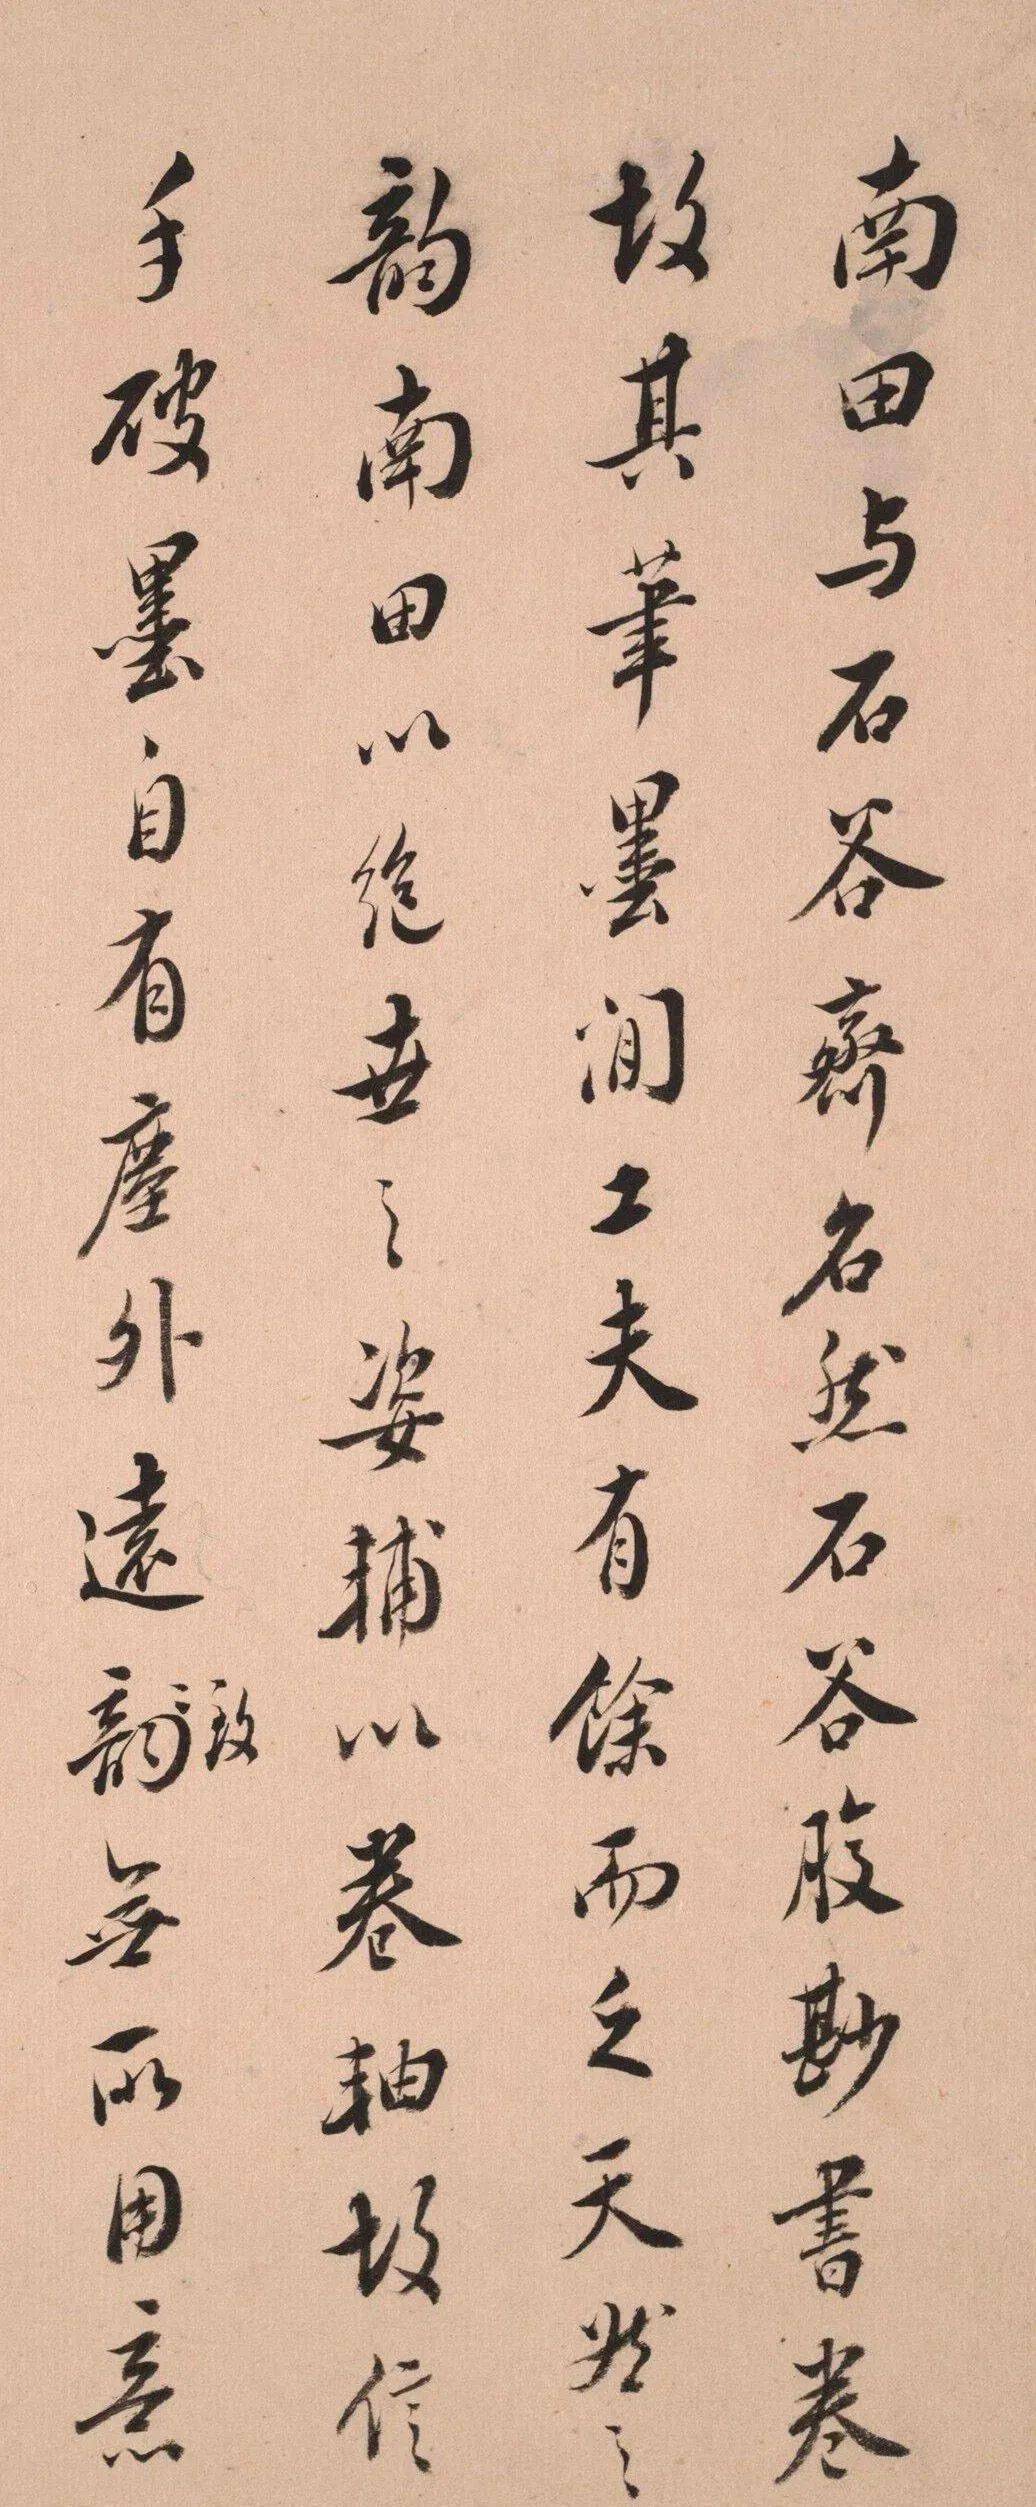 南田与石谷齊名然石谷腹尠書卷
故其筆墨間工夫有餘而乏天然之
韵南田以絶世之姿輔以卷軸故信
手破墨自有塵外遠韵致無所用意